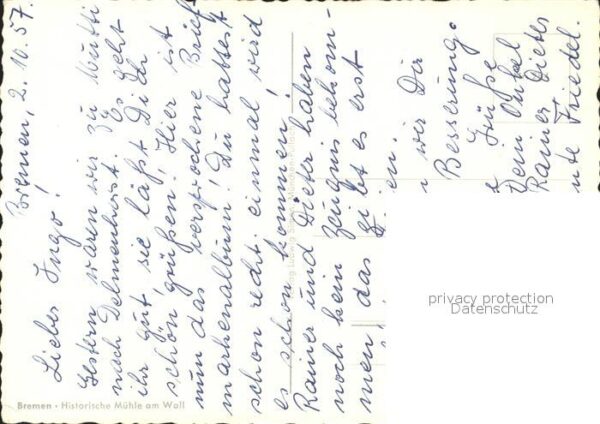 Bremen, 2.10.57.
Liebes Ingo!
Gestern waren wir zu Mutti
nach Delmenhorst. Es geht
ihr gut, sie läßt Dich
schön grüßen! Hier ist
nun das versprochene Brief
markenalbum! Du hattest
schon recht, einmal wird
es schon kommen!
Rainer und Dieter haben
noch kein Zeugnis bekom-
men, das gibt es erst
wir Dir
Besserung.
Grüße
Dein Onkel
Rainer Dieter
Friedel.
Bremen • Historische Mühle am Wall
privacy protection
Datenschutz